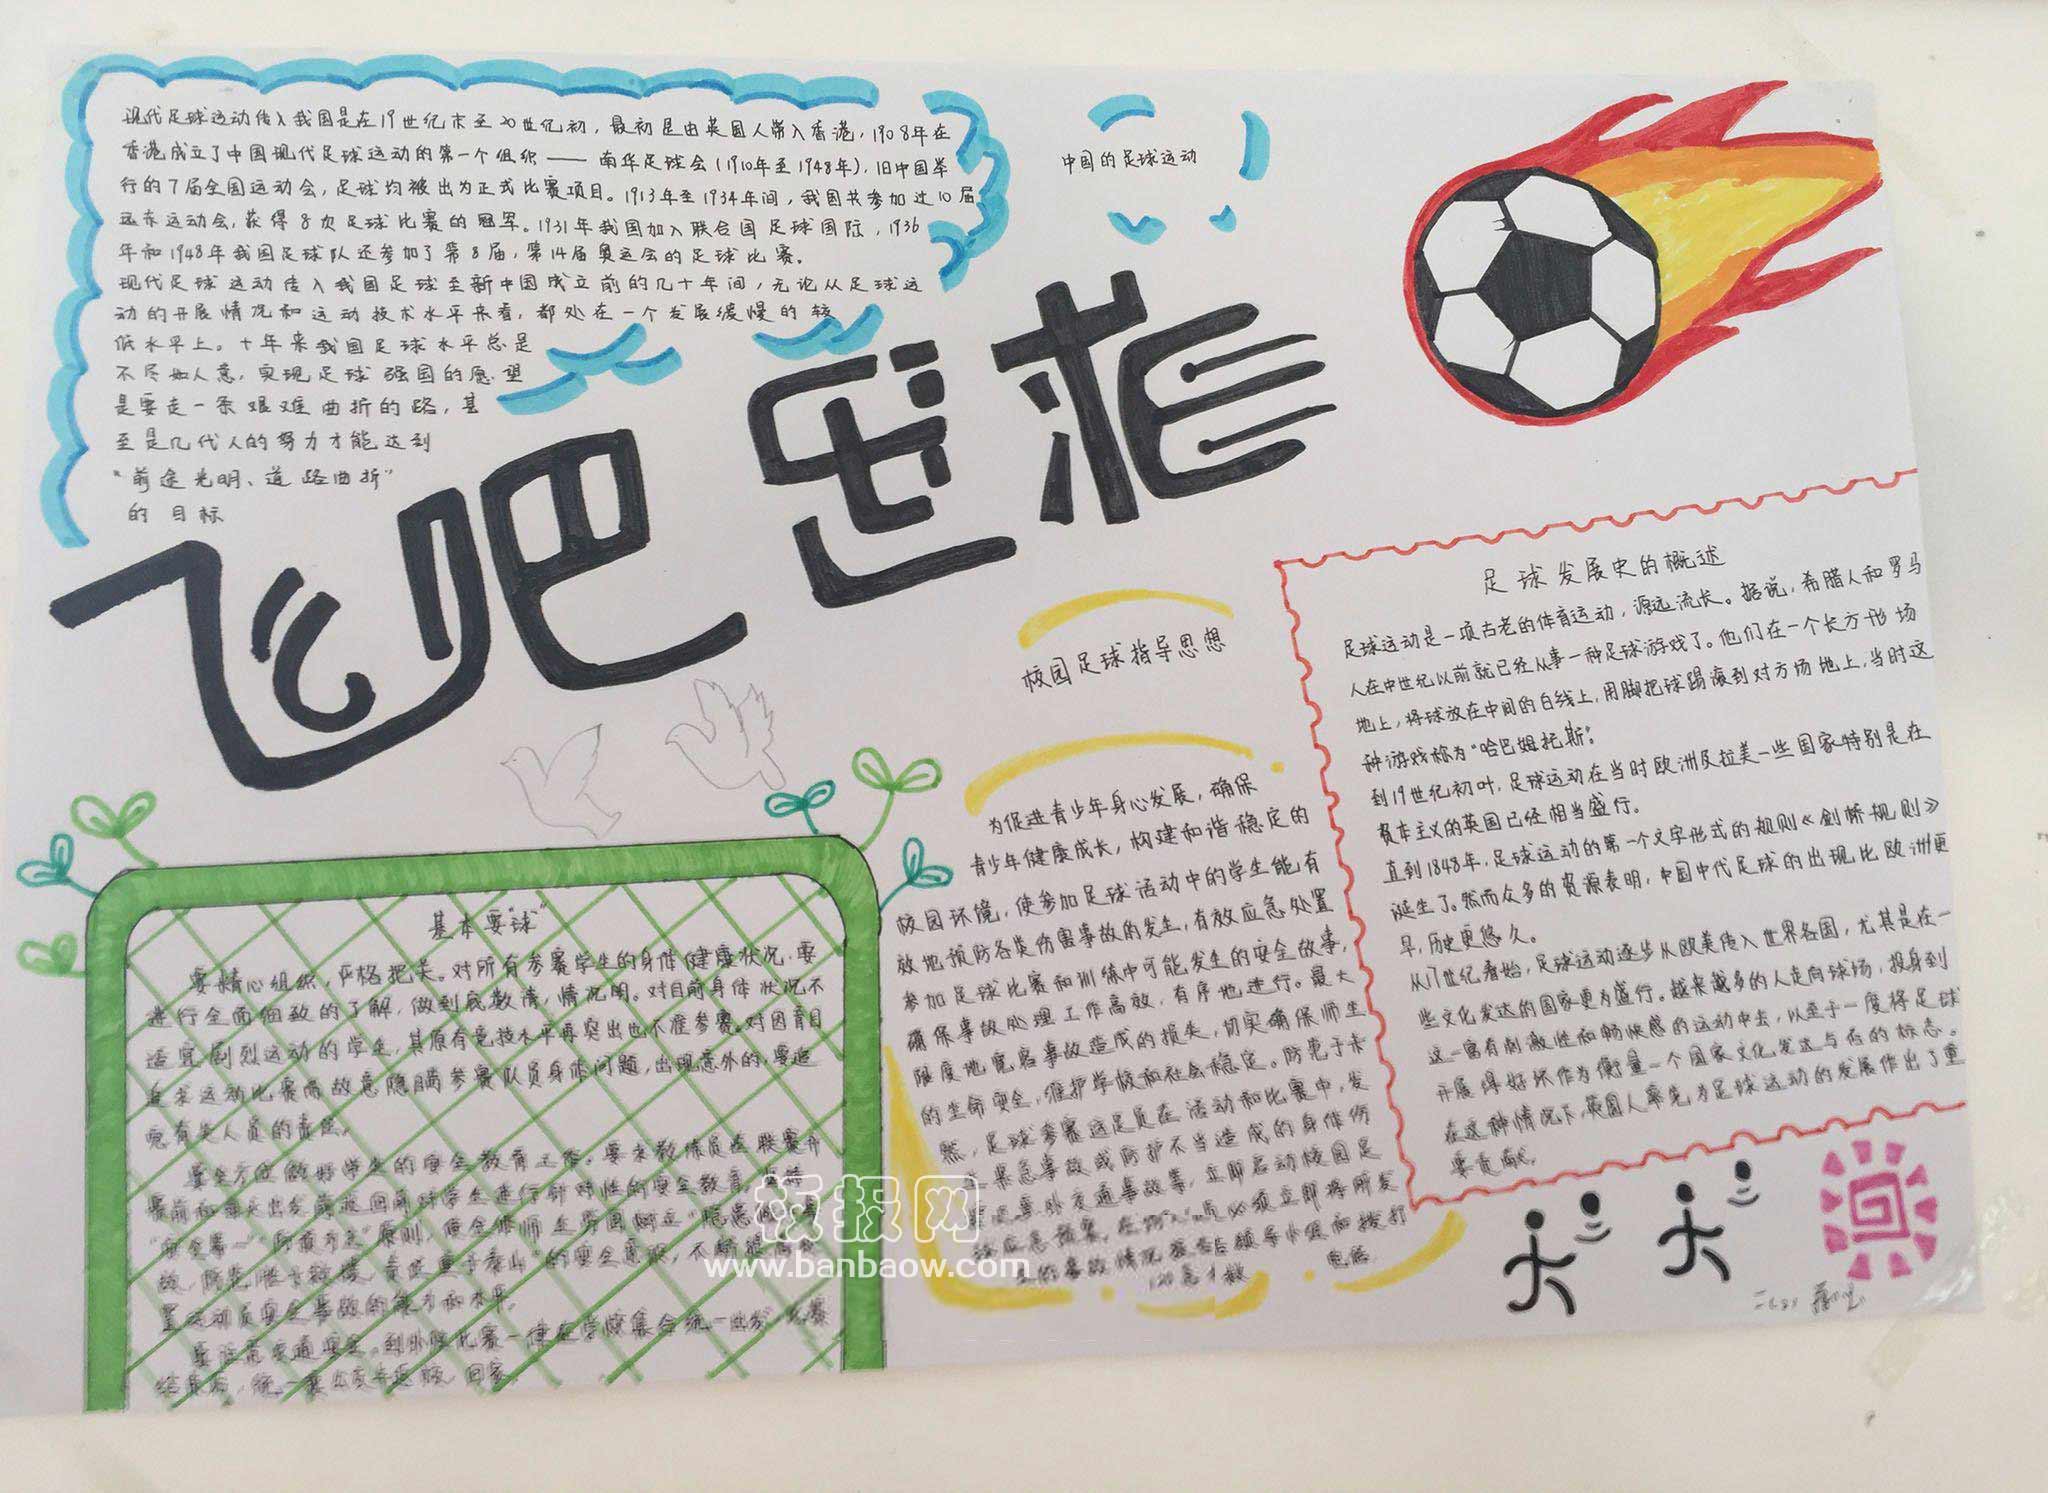 中国的足球运动
现代足球运动传入我国是在19世纪末至20世纪初，最初是由英国人带入香港，1908年在
香港成立了中国现代足球运动的第一个组织——南华足球会(1910年至1948年)，旧中国举
行的7届全国运动会，足球均被出为正式比赛项目。1913年至1934年间，我国共参加过10届
远东运动会，获得8次足球比赛的冠军。1931年我国加入联合国足球国际，1936
年和1948年我国足球队还参加了第8届，第14届奥运会的足球比赛。
现代足球运动传入我国足球至新中国成立前的几十年间，无论从足球运
动的开展情况和运动技术水平来看，都处在一个发展缓慢的较
低水平上。十年来我国足球水平总是
不尽如人意，实现足球强国的愿望
是要走一条艰难曲折的路，甚
至是几代人的努力才能达到
“前途光明、道路曲折”
的目标
飞吧足球
足球发展史的概述
足球运动是一项古老的体育运动，源远流长。据说，希腊人和罗马
人在中世纪以前就已经从事一种足球游戏了。他们在一个长方形场
地上，将球放在中间的白线上，用脚把球踢滚到对方场地上，当时这
种游戏称为“哈巴姆托斯”。
到19世纪初叶，足球运动在当时欧洲及拉美一些国家特别是在
资本主义的英国已经相当盛行。
直到1848年，足球运动的第一个文字形式的规则《剑桥规则》
诞生了。然而众多的资源表明，中国中代足球的出现比欧洲更
早，历史更悠久。
从17世纪看始，足球运动逐步从欧美传入世界各国，尤其是在一
些文化发达的国家更为盛行。越来越多的人走向球场，投身到
这一富有刺激性和畅快感的运动中去，以至于一度将足球
开展得好坏作为衡量一个国家文化发达与否的标志。
在这种情况下，英国人率先为足球运动的发展作出了重
要贡献。
校园足球指导思想
为促进青少年身心发展，确保
青少年健康成长，构建和谐稳定的
校园环境，使参加足球活动中的学生能有
效地预防各类伤害事故的发生，有效应急处置
参加足球比赛和训练中可能发生的安全故事，
确保事故处理工作高效，有序地进行。最大
限度地宽容事故造成的损失，切实确保师生
的生命安全，维护学校和社会稳定。防患于未
然，足球参赛运足员在活动和比赛中，发
生紧急事故或防护不当造成的身体伤
意外交通事故等，立即启动校园足
应急预案，在必须立即将所发
生的事故情况报告后领导小组和拨打
120急救电话
基本要“球”
要精心组织，严格把关。对所有参赛学生的身体健康状况，要
进行全面细致的了解，做到底数清，情况明。对目前身体状况不
适宜剧烈运动的学生，其原有竞技水平再突出也不准参赛。对因盲目
追求运动比赛而故意隐瞒参赛队员身体问题，出现意外的，要追
究有关人员的责任。
要全方位做好学生的安全教育工作。要求教练员在联赛开
赛前和每天出发前返回前对学生进行针对性的安全教育，坚持
“安全第一”“预防为主”原则，使全体师生牢固树立“隐患
故，防范胜于救援，责任重于泰山”的安全意识，不断提高
置运动员安全事故的能力和水平。
要注意交通安全，到外校比赛一律在学校集合统一出发，比赛
结束后，统一乘返校，回家。
板报网
www.banbaow.com